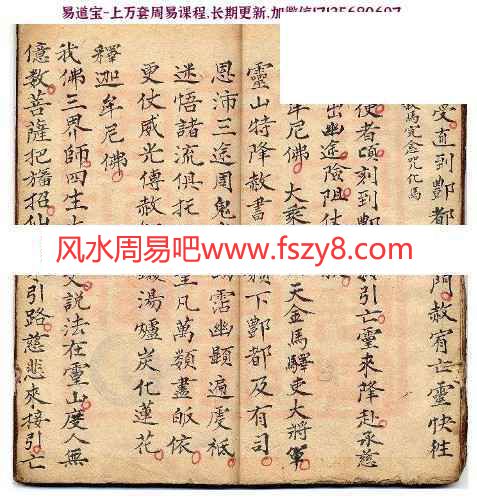 易道宝-上万套周易课程,长期更新,加微信
受直到酆都門赦宥亡靈快徃
馬完念咒化馬
使者頃刻到酆引亡靈來降赴承慈
出幽途險阻
牟尼佛 大乘天金馬驛吏大將軍
靈山特降赦書頒下酆都及有司
恩沛三途周鬼霑幽顯遍虔祗
迷悟諸流俱托凡萬類盡皈依
更仗威光傳赦湯爐炭化蓮花
釋迦牟尼佛
我佛三界師四生父說法在靈山度人無
億教菩薩把旛招仙引路慈悲來接引亡
风水周易吧www.fszy8.com